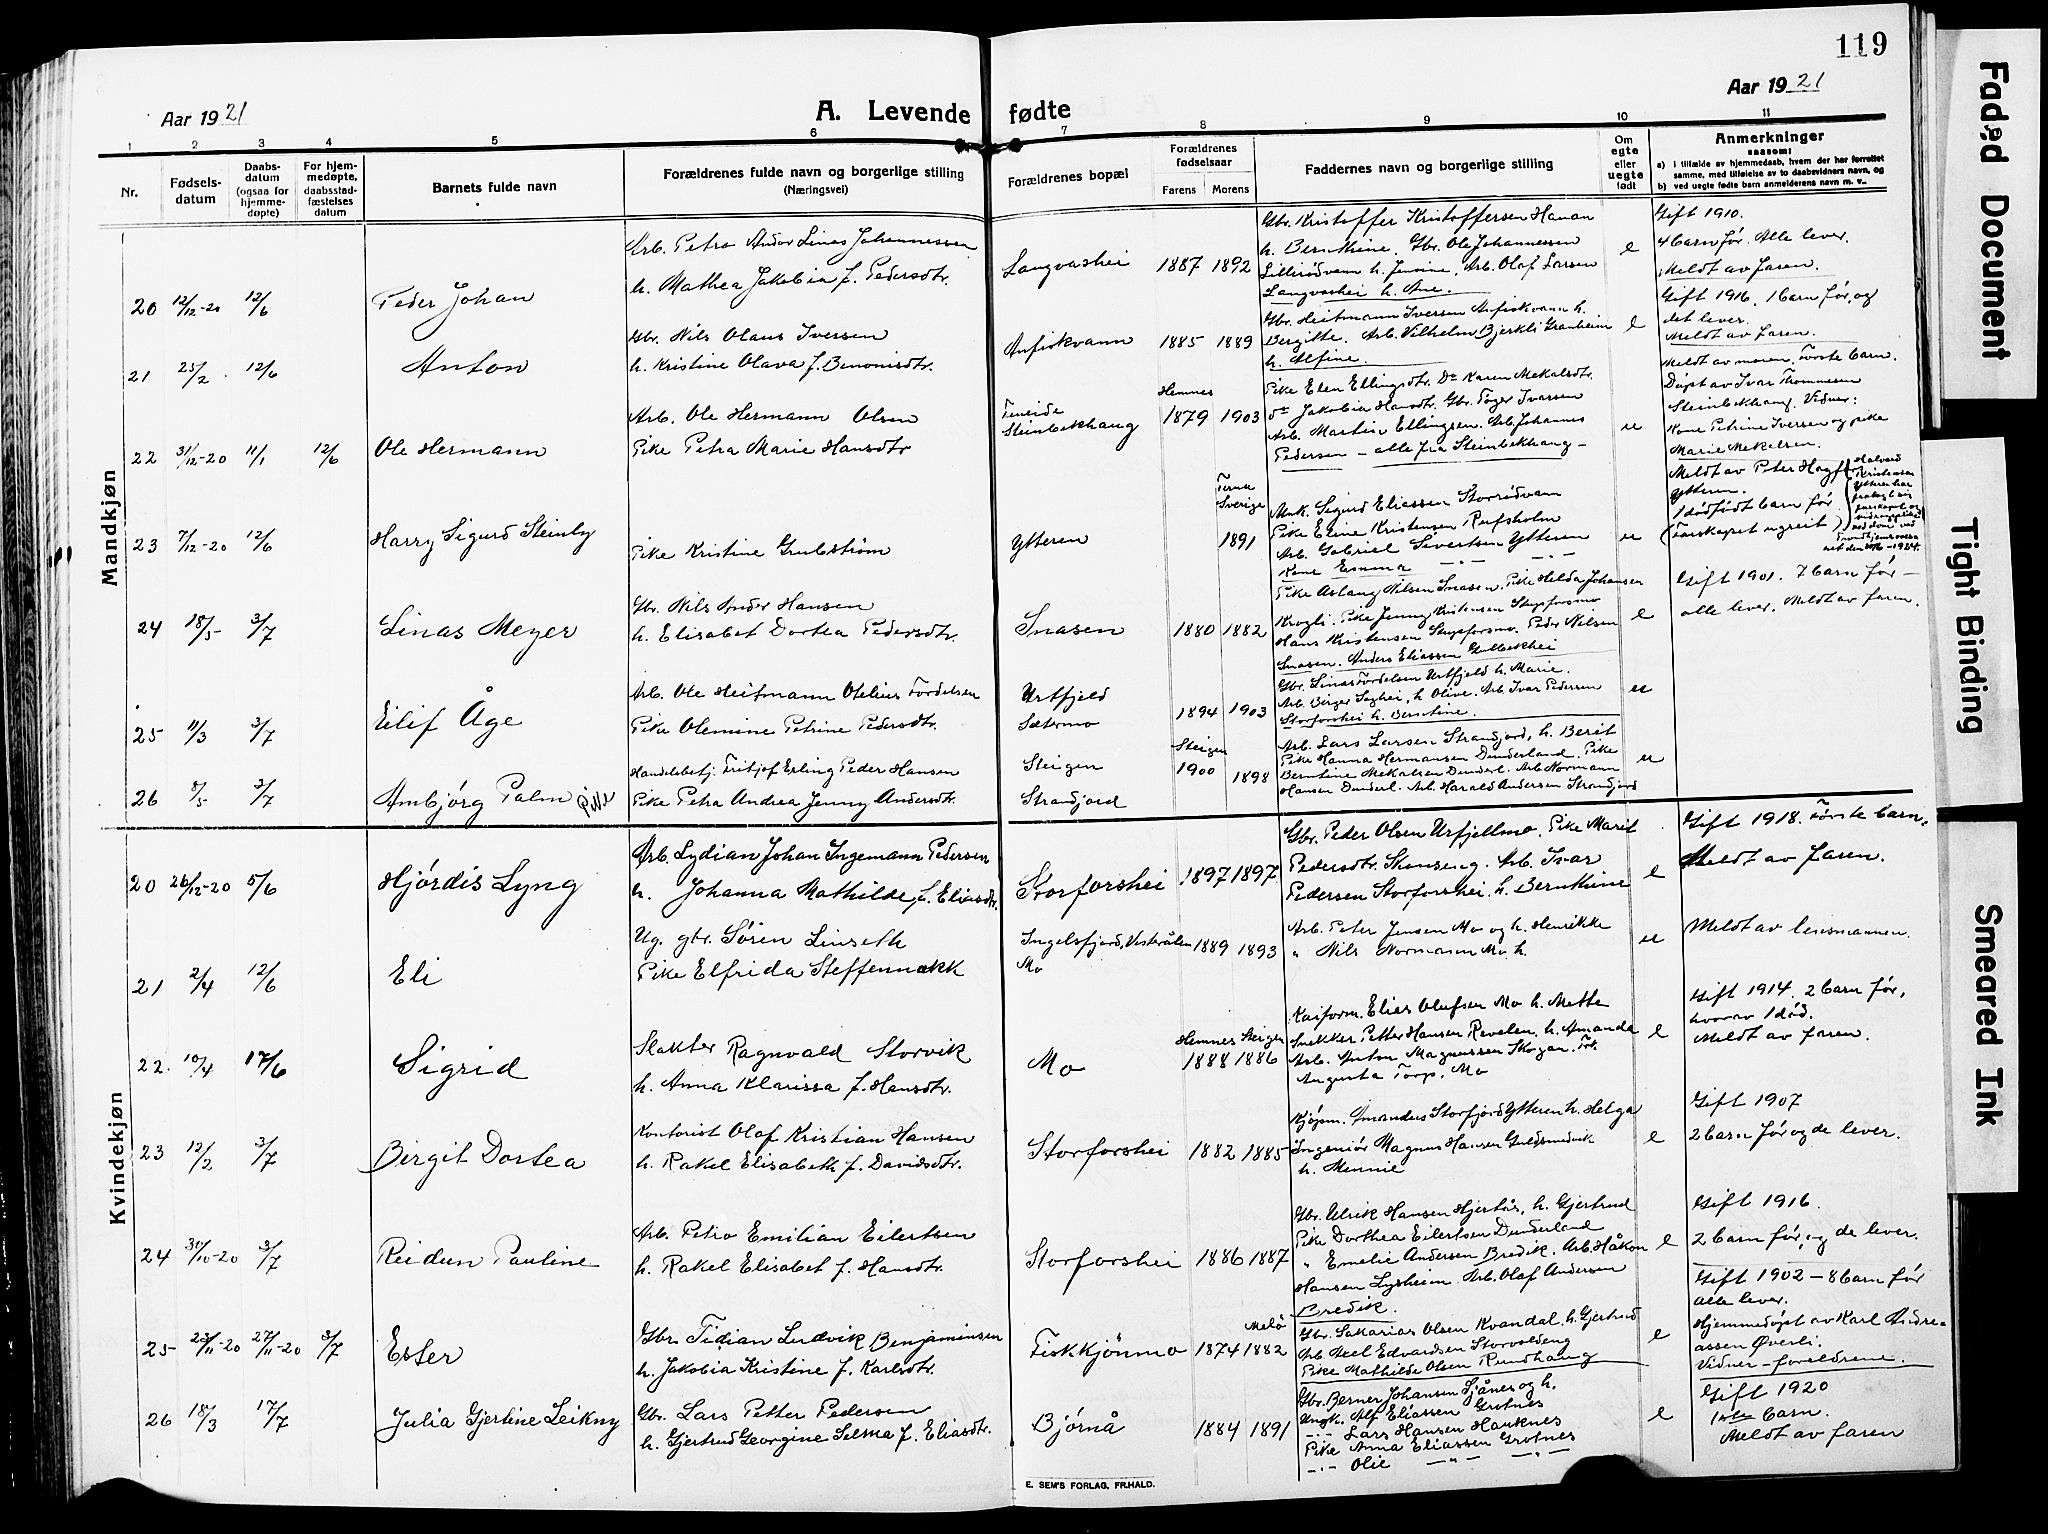 119
Aar 1921
A. Levende fødte
Aar 1921
1 2 3 4 5 6 7 8 9 10 11
Nr.
Fødselsdatum
Daabsdatum (ogsaa for hjemmedøpte)
For hjemmedøpte, daabsstadfæstelses datum
Barnets fulde navn
Forældrenes fulde navn og borgerlige stilling
(Næringsvei)
Forældrenes bopæl
Forældrenes fødselsaar
Farens Morens
Faddernes navn og borgerlige stilling
Om egte eller uegte født
Anmerkninger
saasom:
a) i tilfælde av hjemmedaab, hvem der har forrettet samme, med tilføielse av to daabsvidners navn, og
b) ved uegte fødte barn anmelderens navn m. v..
Mandkjøn
20 12/12-20 12/6 Peder Johan
Arb. Petro Andor Linas Johannessen
h. Mathea Jakobia f. Pedersdtr.
Langvashei 1887 1892
Gbr. Kristoffer Kristoffersen Hauan
h. Bernthine. Gbr. Ole Johannessen
Lillerödvann h. Jensine. Arb. Olaf Larsen
Langvashei h. Ane.
e
Gift 1910.
4 barn før. Alle lever.
Meldt av faren.
21 25/2 12/6 Anton
Gbr. Nils Olaus Iversen
h. Kristine Olava f. Benonisdtr.
Anfiskvann 1885 1889
Gbr. Heitmann Iversen Anfiskvann h.
Bergitte. Arb. Vilhelm Bjerkli Granheim
h. Alfine.
e
Gift 1916. 1 barn før, og
det lever.
Meldt av faren.
22 31/12-20 11/1 12/6 Ole Hermann
Arb. Ole Hermann Olsen
Pike Petra Marie Hansdtr
Steinbekhaug
Hemnes
1879 1903
Pike Elen Ellingsdtr. Do Karen Mekalsdtr.
do Jakobia Hansdtr. Gbr. Töger Ivarsen
Arb. Martin Ellingsen. Arb. Johannes
Pedersen - alle fra Steinbekhaug -
ue
Meldt av moren. Første barn.
Døpt av Ivar Thommesen
Steinbekhaug. Vidner:
Kone Petrine Iversen og pike
Marie Mekelsen.
23 7/12-20 12/6 Harry Sigurd Steinby
Pike Kristine Grubström
Ytteren
Terna
Sverige
1891
Ank. Sigurd Eliassen Storrödvann
Pike Eline Kristensen Rufsholm
Arb. Gabriel Sivertsen Ytteren
Kone Emma -"-
ue
Meldt av Peter Hagf.
Ytteren.
1 dødfødt barn før
(Farskapet ugreit)
24 18/5- 3/7 Linas Meyer
Gbr. Nils Ander Hansen
h. Elisabet Dortea Pedersdtr.
Snasen 1880 1882
Pike Aslaug Nilsen Snasen. Pike Helda Johansen
Krogli. Pike Jenny Kristensen Stupforsmo
Hans Kristensen Stupforsmo. Peder Nilsen
Snasen. Anders Eliassen Gulbekhei
e
Gift 1901. 7 barn før -
alle lever. Meldt av faren.
25 11/3 3/7 Eilif Åge
Arb. Ole Heitmann Otelius Fordelsen
Pike Olemine Petrine Pedersdtr.
Urtfjeld
Sætermo
1894 1903
Gbr. Linas Fordelsen Urtfjeld h. Marie.
Arb. Birger Seghei, h. Olive. Arb. Ivar Pedersen
Storforshei h. Berntine.
ue
26 8/5- 3/7 Ambjørg Palm Pike
Handelsbetj. Fritjof Erling Peder Hansen
Pike Petra Andrea Jenny Andersdtr.
Steigen
Strandjord
Steigen
1900 1898
Arb. Lars Larsen Strandjord, h. Berit
Pike Hanna Hermansen Dunderland. Pike
Berntine Mekalsen Dunderl. Arb. Normann
Hansen Dunderl. Arb. Harald Andersen Strandjord
ue
Kvindekjøn
20 26/12-20 5/6 Hjördis Lyng
Arb. Lydian Johan Ingemann Pedersen
h. Johanna Mathilde f. Eliasdtr.
Storforshei 1897 1897
Gbr. Peder Olsen Urfjellmo. Pike Marit
Pedersdtr. Stenseng. Arb. Ivar
Pedersen Storforshei. h. Bernthine
e
Gift 1918. Første barn.
Meldt av faren.
21 2/4 12/6 Eli
Ug. gbr. Sören Linseth
Pike Elfrida Steffennakk
Ingelsfjord, Vesterålen
Mo
1889 1893
Arb. Peter Jensen Mo og h. Henrikke
" Nils Normann Mo. h.
ue
Meldt av lensmannen.
22. 10/4 17/6 Sigrid
Slakter Ragnvald Storvik
h. Anna Klarissa f. Hansdtr.
Mo
Hemnes Steigen
1888 1886
Kaiform. Elias Olufsen Mo h. Mette
Snekker Petter Hansen Revelen, h. Amanda
Arb. Anton Magnussen Skogan. Frk.
Augusta Torp. Mo
e
Gift 1914. 2 barn før,
hvorav 1 død.
Meldt av faren.
23 12/2 3/7 Birgit Dortea
Kontorist Olaf Kristian Hansen
h. Rakel Elisabeth f. Davidsdtr.
Storforshei 1882 1885
Kjøpm. Amandus Storfjord Ytteren h. Helga
Ingeniør Magnus Hansen Guldsmedvik
h. Mennie
e
Gift 1907
2 barn før og de lever.
24 31/10-20 3/7 Reidun Pauline
Arb. Petro Emilian Eilertsen
h. Rakel Elisabet f. Hansdtr.
Storforshei 1886 1887
Gbr. Ulrik Hansen Hjertås, h. Gjertrud
Pike Dorthea Eilertsen Dunderland
" Emelie Andersen Bredik. Arb. Håkon
Hansen Lysheim. Arb. Olaf Andersen
Bredik.
e
Gift 1916
2 barn før, og de lever.
25 23/11-20 27/11-20 3/7 Ester
Gbr. Tidian Ludvik Benjaminsen
h. Jakobia Kristine f. Karlsdtr.
Fiskkjönmo
Melö
1874 1882
Gbr. Sakarias Olsen Kvandal h. Gjertrud
Arb. Axel Edvardsen Storvoldeng
Pike Mathilde Olsen Rundhaug
e
Gift 1902 - 8 barn før
alle lever.
Hjemmedøpt av Karl Andreassen Øverli.
Vidner - foreldrene.
26 18/3 17/7 Julia Gjertine Leikny
Gbr. Lars Petter Pedersen
h. Gjertrud Georgine Selma f. Eliasdtr.
Bjørnå 1884 1891
Gbr. Berner Johansen Sjånes og h.
Ungk. Alf Eliassen Grotnes
-"- Lars Hansen Hauknes
Pike Anna Eliassen Grotnes
-"- Olie -"- -"-
e
Gift 1920
1ste barn.
Meldt av faren
E. SEM'S FORLAG, FR.HALD.
Faded Document
Tight Binding
Smeared Ink